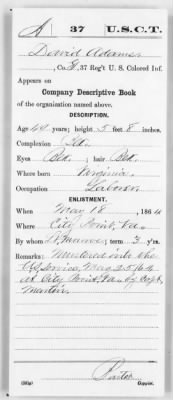 A 37 U.S.C.T.
David Adams
Co. G, 37 Reg't U. S. Colored Inf.
Appears on
Company Descriptive Book
of the organization named above.
DESCRIPTION.
Age 44 years; height 5 feet 8 inches.
Complexion Blk.
Eyes Blk.; hair Blk.
Where born Virginia.
Occupation Laborer.
ENLISTMENT.
When May 18, 1864
Where City Point, Va.
By whom term 3 y'rs.
Remarks: Mustered into the
U.S. Service, May 25, 64
at City Point, Va. by Capt.
Martin.
Copyist.